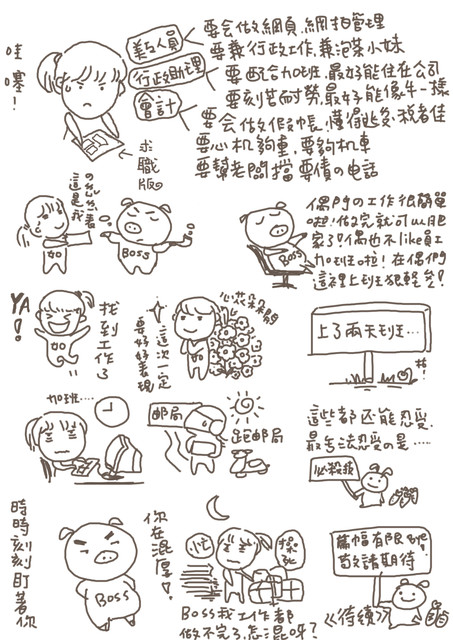 哇
塞!
美工人員
行政助理
會計
要會做網頁,網拍管理
要兼行政工作,兼泡茶小妹
要配合加班,最好能住在公司
要刻苦耐勞,最好能像牛一樣
要會做假帳,懂得逃漏稅者佳
要心机夠重,要夠机車
要幫老闆擋要債の電話
求職版
這是我
の
如
BOSS
偶們の工作很簡單
啦!做完就可以肥
家了!偶也不like員工
加班啦!在偶們
這裡上班狠輕鬆!
BOSS
YA!!
找到工作了
如
這次一定
要好好表現
心花朵朵開
如
上了兩天班…
加班….
郵局
跑郵局
這些都还能忍受.
最無法忍受の是……
必殺技
時時刻刻盯著你
BOSS
你在混厚!
忙
操死
BOSS我工作都
做不完了,怎混呀?
篇幅有限
敬請期待
<<待續>>